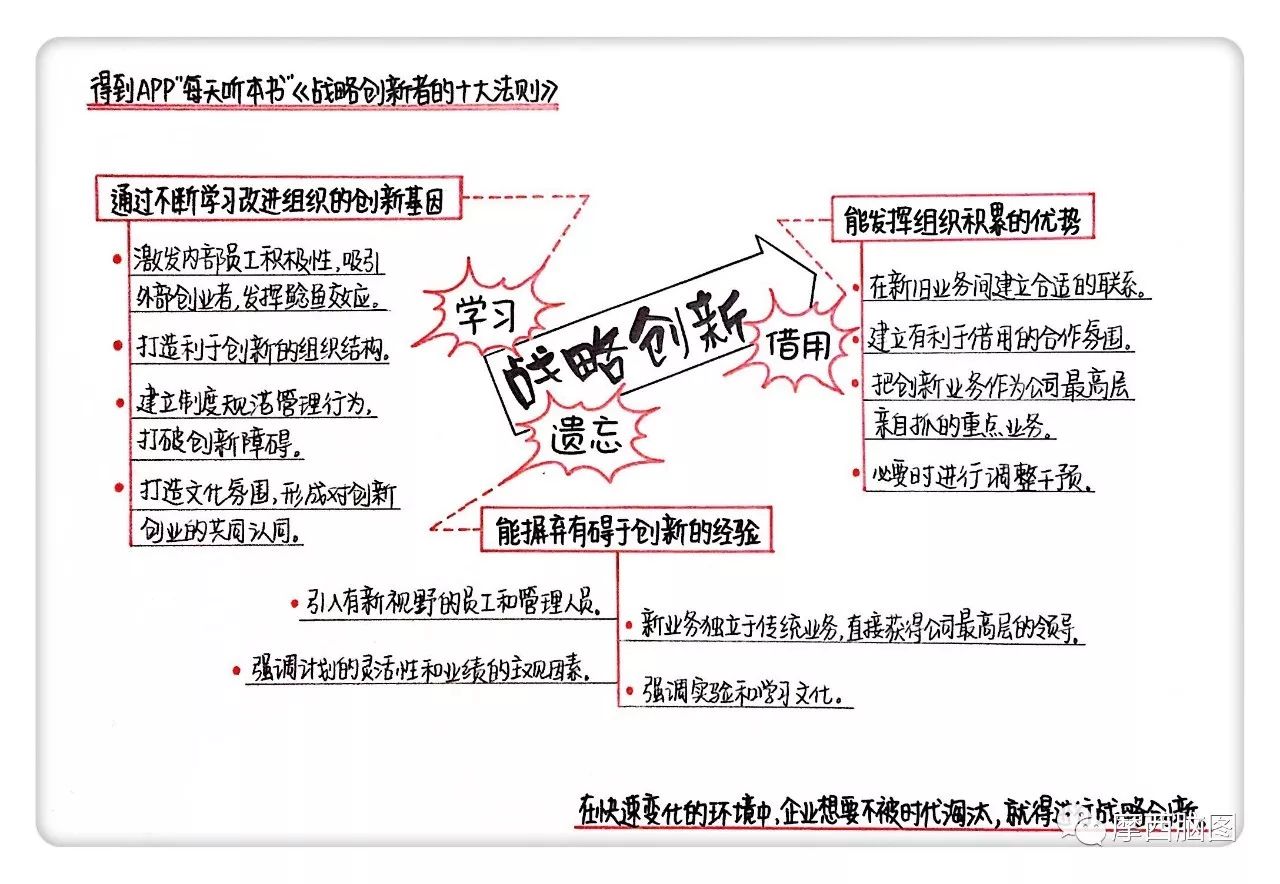 得到APP"每天听本书"《战略创新者的十大法则》
通过不断学习改进组织的创新基因
激发内部员工积极性,吸引
外部创业者,发挥鲶鱼效应。
打造利于创新的组织结构。
建立制度规范管理行为,
打破创新障碍。
打造文化氛围,形成对创新
创业的共同认同。
学习
战略创新
借用
遗忘
能发挥组织积累的优势
在新旧业务间建立合适的联系。
建立有利于借用的合作氛围。
把创新业务作为公司最高层
亲自抓的重点业务。
必要时进行调整干预。
能摒弃有碍于创新的经验
引入有新视野的员工和管理人员。
强调计划的灵活性和业绩的主观因素。
新业务独立于传统业务,直接获得公司最高层的领导。
强调实验和学习文化。
在快速变化的环境中,企业想要不被时代淘汰,就得进行战略创新。
摩西脑图